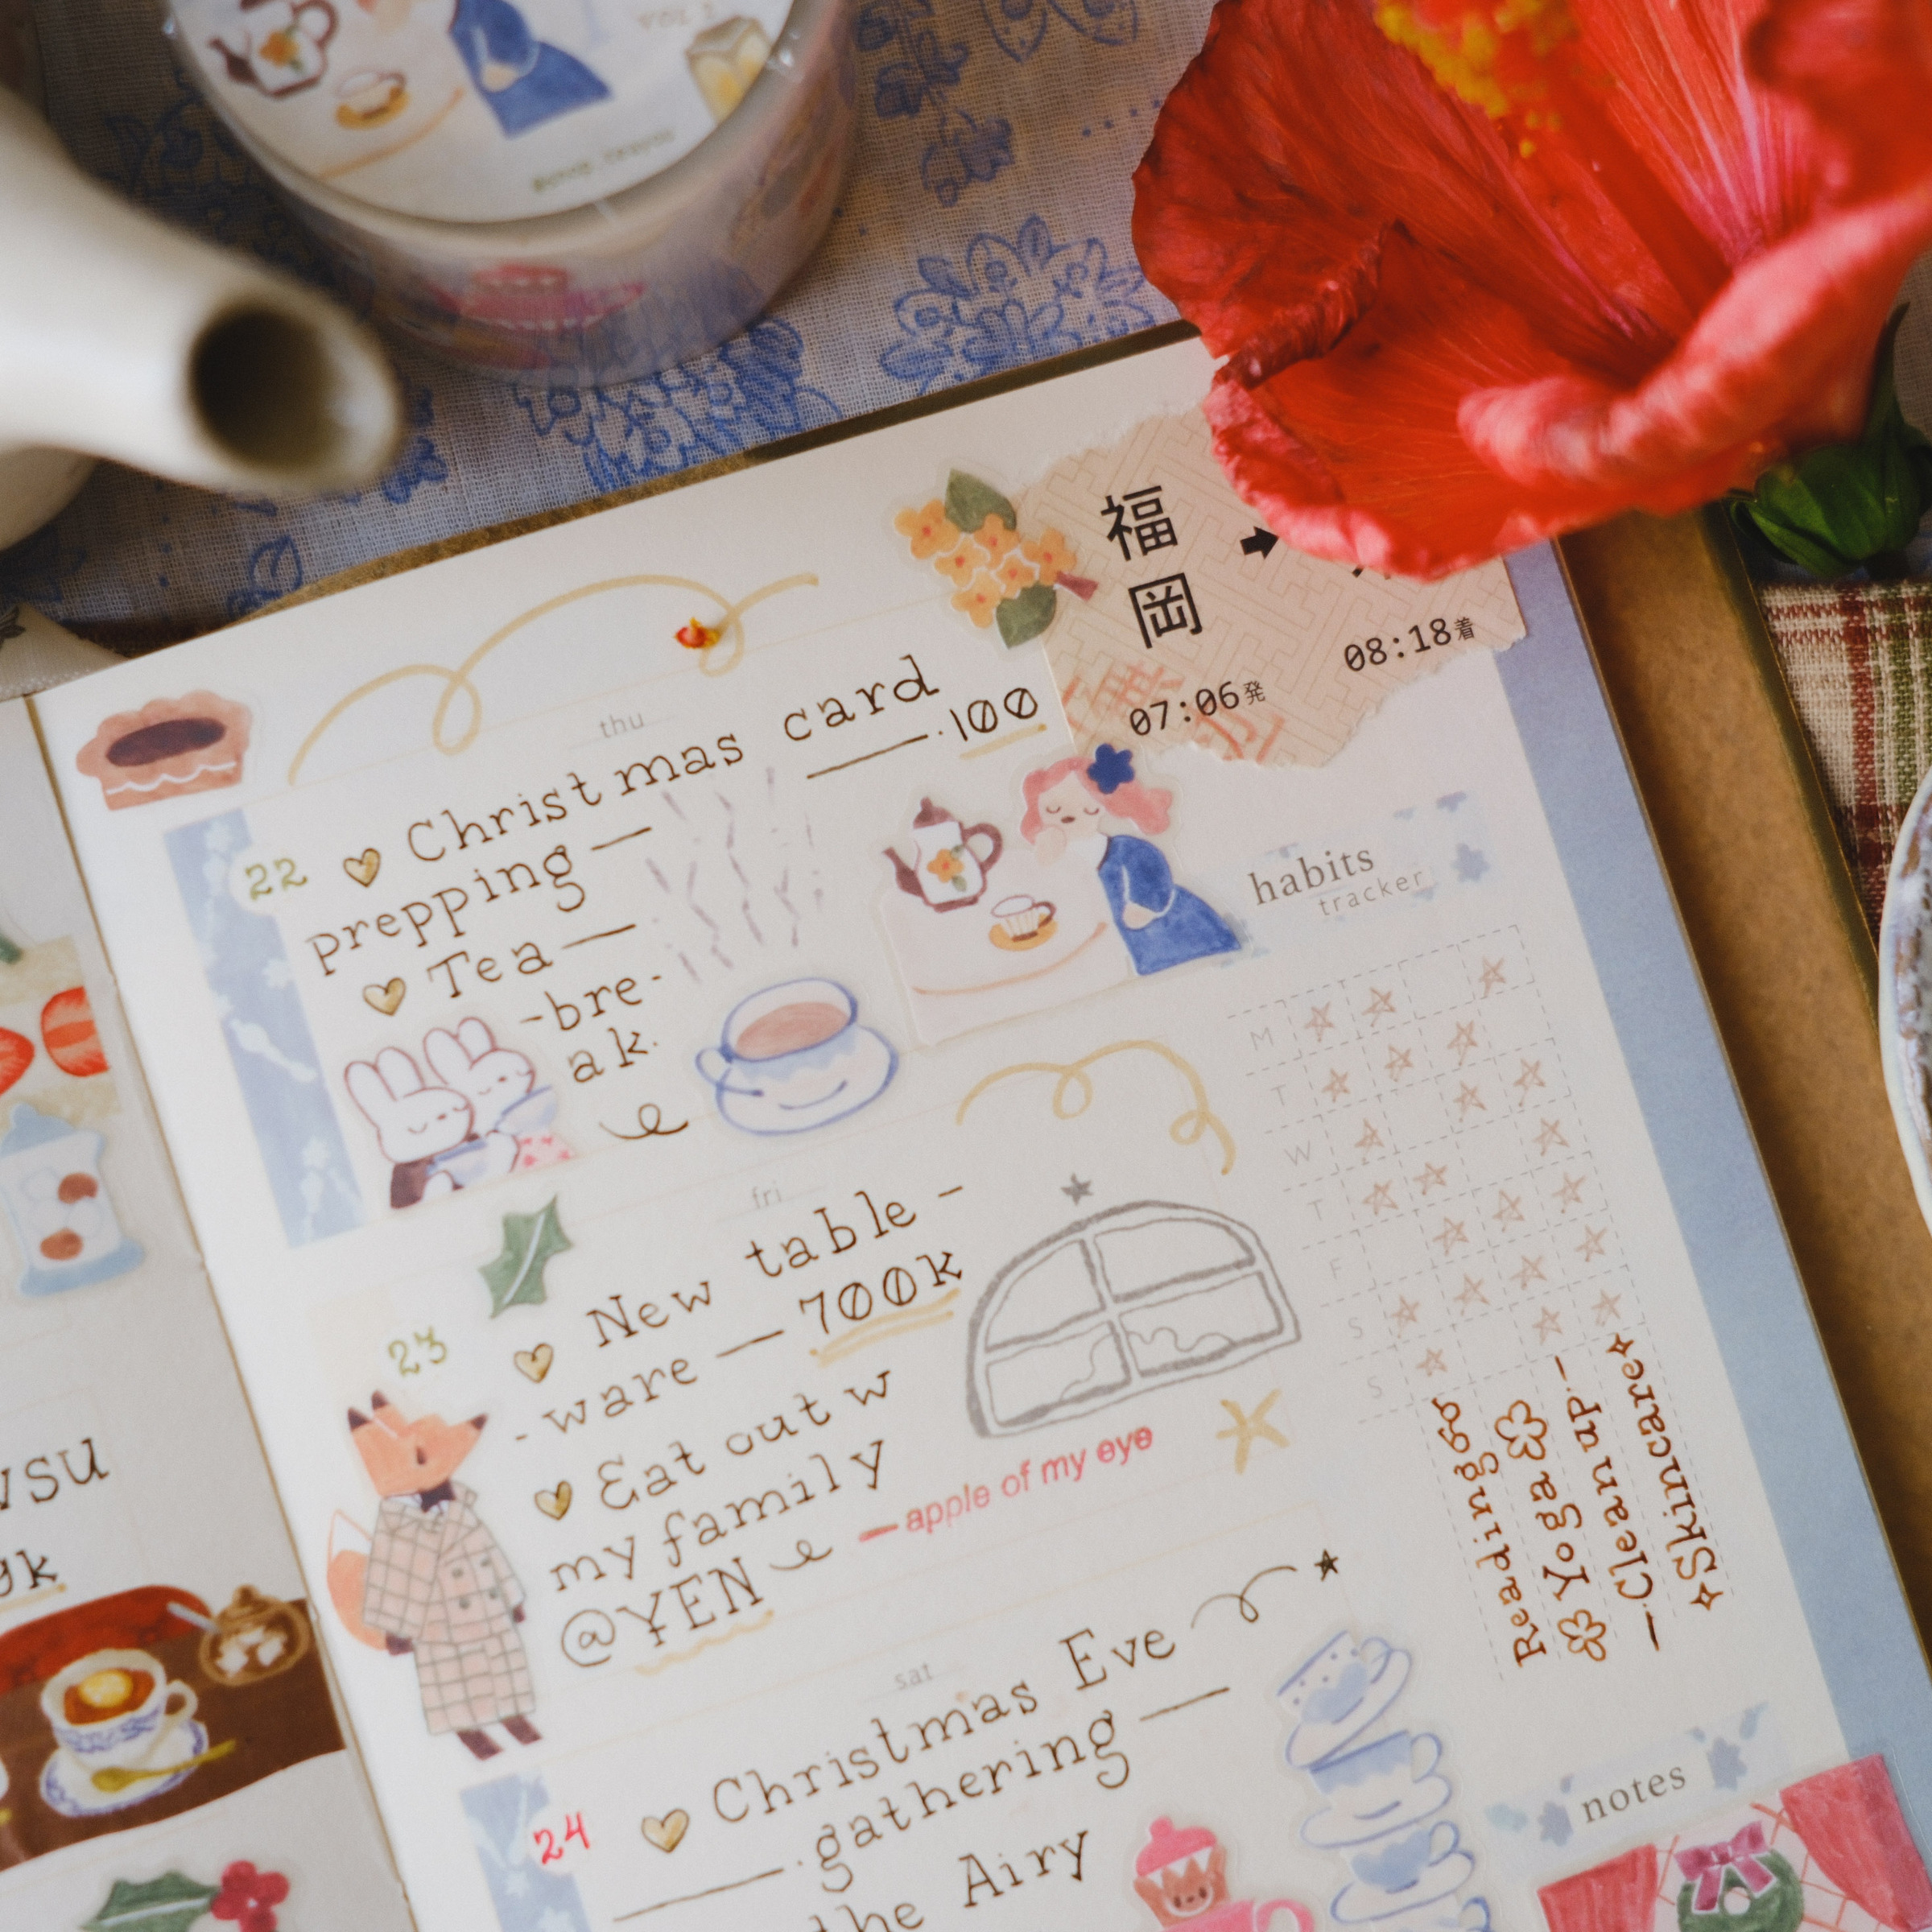 VOL 2
福岡 ➡
07:06発
08:18着
thu
22 Christmas card
prepping — — 100
Tea —
-bre-
ak.
fri
23 New table -
- ware — 700k
Eat out w
my family
@YEN
— apple of my eye
sat
24 Christmas Eve
gathering —
the Airy
habits
tracker
M
T
W
T
F
S
S
Reading
Yoga
— Clean up —
Skincare
notes